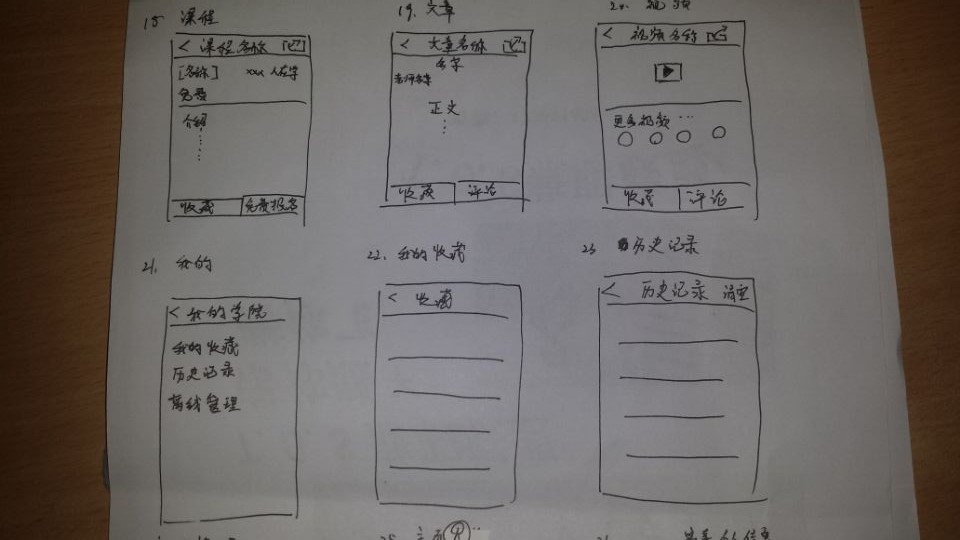 18 课程
< 课程名称
[名称] xxx 人在学
免费
介绍
收藏 免费报名
19. 文章
< 文章名称
名字
正文
收藏 评论
20. 视频
< 视频名称
更多视频 ...
收藏 评论
21. 我的
< 我的学院
我的收藏
历史记录
离线管理
22. 我的收藏
< 收藏
23 历史记录
< 历史记录 清空